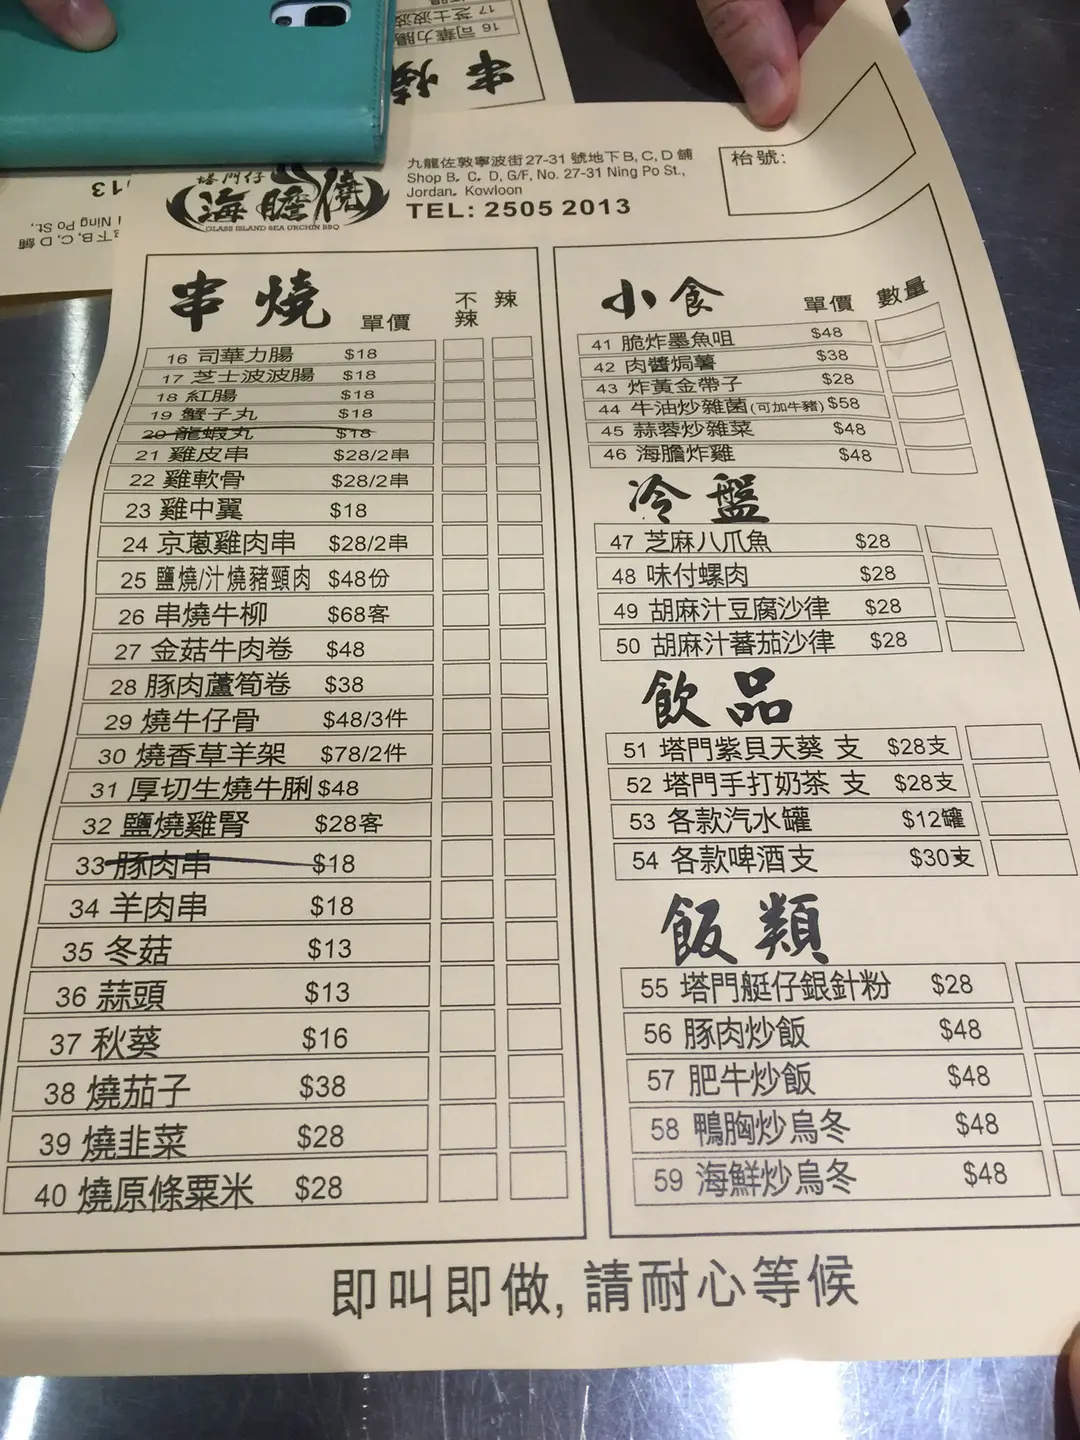 16 司華力腸
17 芝士波波
串燒
13
Ning Po St.,
下B, C, D 舖
海膽燒
GLASS ISLAND SEA URCHIN BBQ
九龍佐敦寧波街27-31 號地下B, C, D 舖
Shop B. C. D, G/F, No. 27-31 Ning Po St.,
Jordan. Kowloon
TEL: 2505 2013
枱號:
串燒 單價 不辣 辣
16 司華力腸 $18
17 芝士波波腸 $18
18 紅腸 $18
19 蟹子丸 $18
20 龍蝦丸 $18
21 雞皮串 $28/2串
22 雞軟骨 $28/2串
23 雞中翼 $18
24 京蔥雞肉串 $28/2串
25 鹽燒/汁燒豬頸肉 $48份
26 串燒牛柳 $68客
27 金菇牛肉卷 $48
28 豚肉蘆筍卷 $38
29 燒牛仔骨 $48/3件
30 燒香草羊架 $78/2件
31 厚切生燒牛脷 $48
32 鹽燒雞腎 $28客
33 豚肉串 $18
34 羊肉串 $18
35 冬菇 $13
36 蒜頭 $13
37 秋葵 $16
38 燒茄子 $38
39 燒韭菜 $28
40 燒原條粟米 $28
小食 單價 數量
41 脆炸墨魚咀 $48
42 肉醬焗薯 $38
43 炸黃金帶子 $28
44 牛油炒雜菌(可加牛豬) $58
45 蒜蓉炒雜菜 $48
46 海膽炸雞 $48
冷盤
47 芝麻八爪魚 $28
48 味付螺肉 $28
49 胡麻汁豆腐沙律 $28
50 胡麻汁蕃茄沙律 $28
飲品
51 塔門紫貝天葵 支 $28支
52 塔門手打奶茶 支 $28支
53 各款汽水罐 $12罐
54 各款啤酒支 $30支
飯類
55 塔門艇仔銀針粉 $28
56 豚肉炒飯 $48
57 肥牛炒飯 $48
58 鴨胸炒烏冬 $48
59 海鮮炒烏冬 $48
即叫即做, 請耐心等候